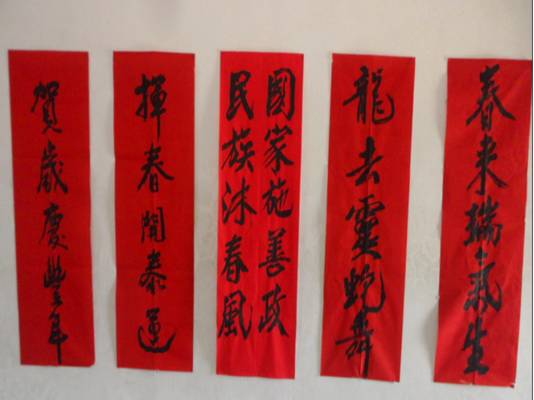 春来瑞气生
龍去靈蛇舞
國家施善政
民族沐春風
揮春開泰運
賀歲慶豐年